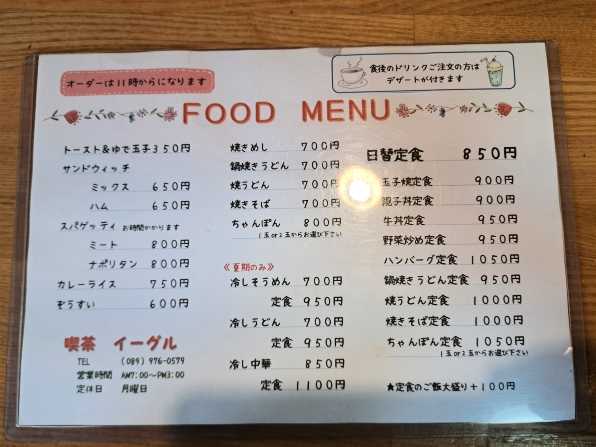 オーダーは11時からになります
食後のドリンクご注文の方は
デザートが付きます
FOOD MENU
トースト&ゆで玉子350円
サンドウィッチ
ミックス 650円
ハム 650円
スパゲッティ お時間かかります
ミート 800円
ナポリタン 800円
カレーライス 750円
ぞうすい 600円
喫茶 イーグル
TEL (089)976-0579
営業時間 AM7:00~PM3:00
定休日 月曜日
焼きめし 700円
鍋焼きうどん 700円
焼うどん 700円
焼きそば 700円
ちゃんぽん 800円
1玉or2玉からお選び下さい
《夏期のみ》
冷しそうめん 700円
定食 950円
冷しうどん 700円
定食 950円
冷し中華 850円
定食 1100円
日替定食 850円
玉子焼定食 900円
親子丼定食 900円
牛丼定食 950円
野菜炒め定食 950円
ハンバーグ定食 1050円
鍋焼きうどん定食 950円
焼うどん定食 1000円
焼きそば定食 1000円
ちゃんぽん定食 1050円
1玉or2玉からお選び下さい
★定食のご飯大盛り+100円